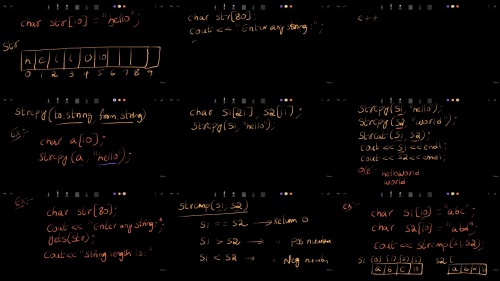 char str[10] = "hello";
Str
h e l l o \0
0 1 2 3 4 5 6 7 8 9
char str[80];
cout << "Enter any string:";
c++
Strcpy(to_string, from_string)
Ex:-
char a[10];
Strcpy(a, "hello");
char S1[21], S2[11];
Strcpy(S1, "hello");
Strcpy(S1, "hello");
Strcpy(S2, "world");
Strcat(S1, S2);
cout << S1 << endl;
cout << S2 << endl;
O/P:-
helloworld
world
Ex:-
char str[80];
cout << "Enter any string:";
gets(str);
cout << "String length is:"
Strcmp(S1, S2)
S1 == S2 → Return 0
S1 > S2 → " Pos number
S1 < S2 → " Neg number
char S1[10] = "abc";
char S2[10] = "abd";
cout << strcmp(S1, S2);
S1 [0] [1] [2] [3] S2 [
a b c \0